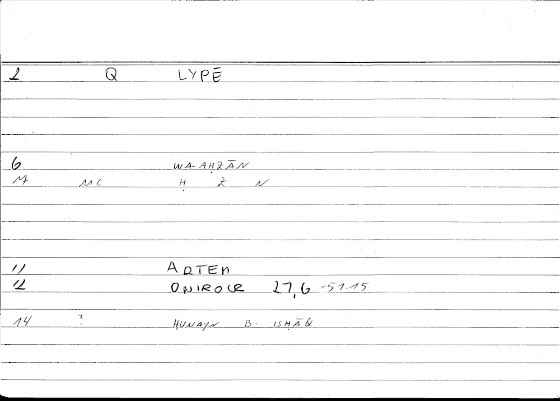 1 Q LYPĒ
6 WA-AḤZĀN
M MC Ḥ Z N
11 ARTEM
12 ONIROCR 27,6 -51.15
14 ? ḤUNAYN B. ISḤĀQ